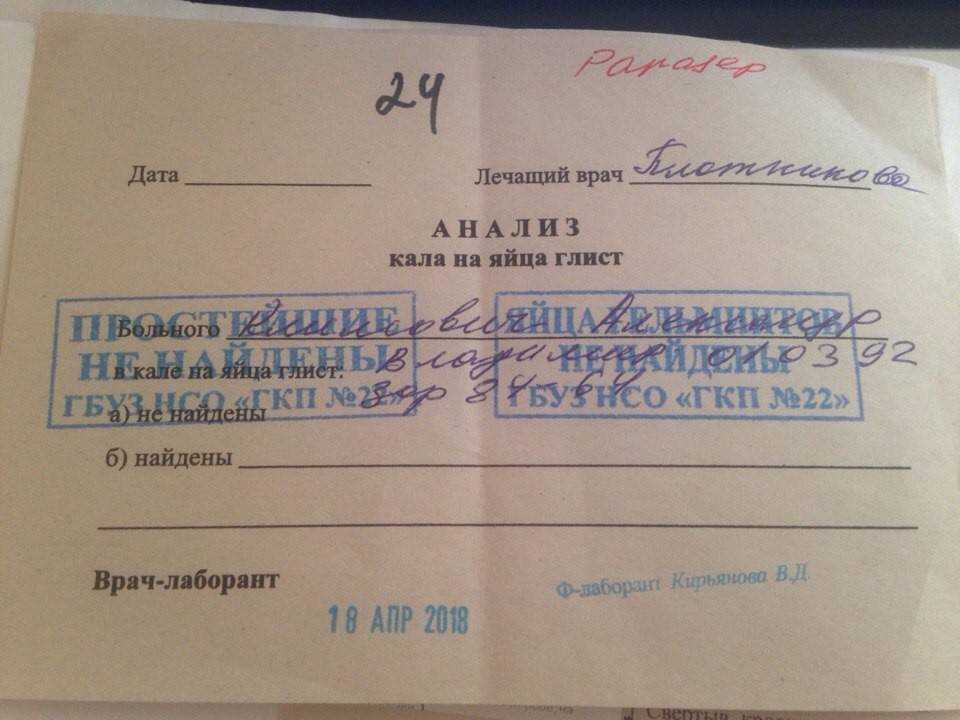 24
Дата Лечащий врач Плотникова
АНАЛИЗ
кала на яйца глист
ПРОСТЕЙШИЕ
НЕ НАЙДЕНЫ
ГБУЗ НСО «ГКП №22»
ЯЙЦА ГЕЛЬМИНТОВ
НЕ НАЙДЕНЫ
ГБУЗ НСО «ГКП №22»
Больного Александр
в кале на яйца глист: Владимир 010392
а) не найдены
б) найдены
Врач-лаборант
Ф-лаборант Кирьянова В.Д.
18 АПР 2018
Свертыв